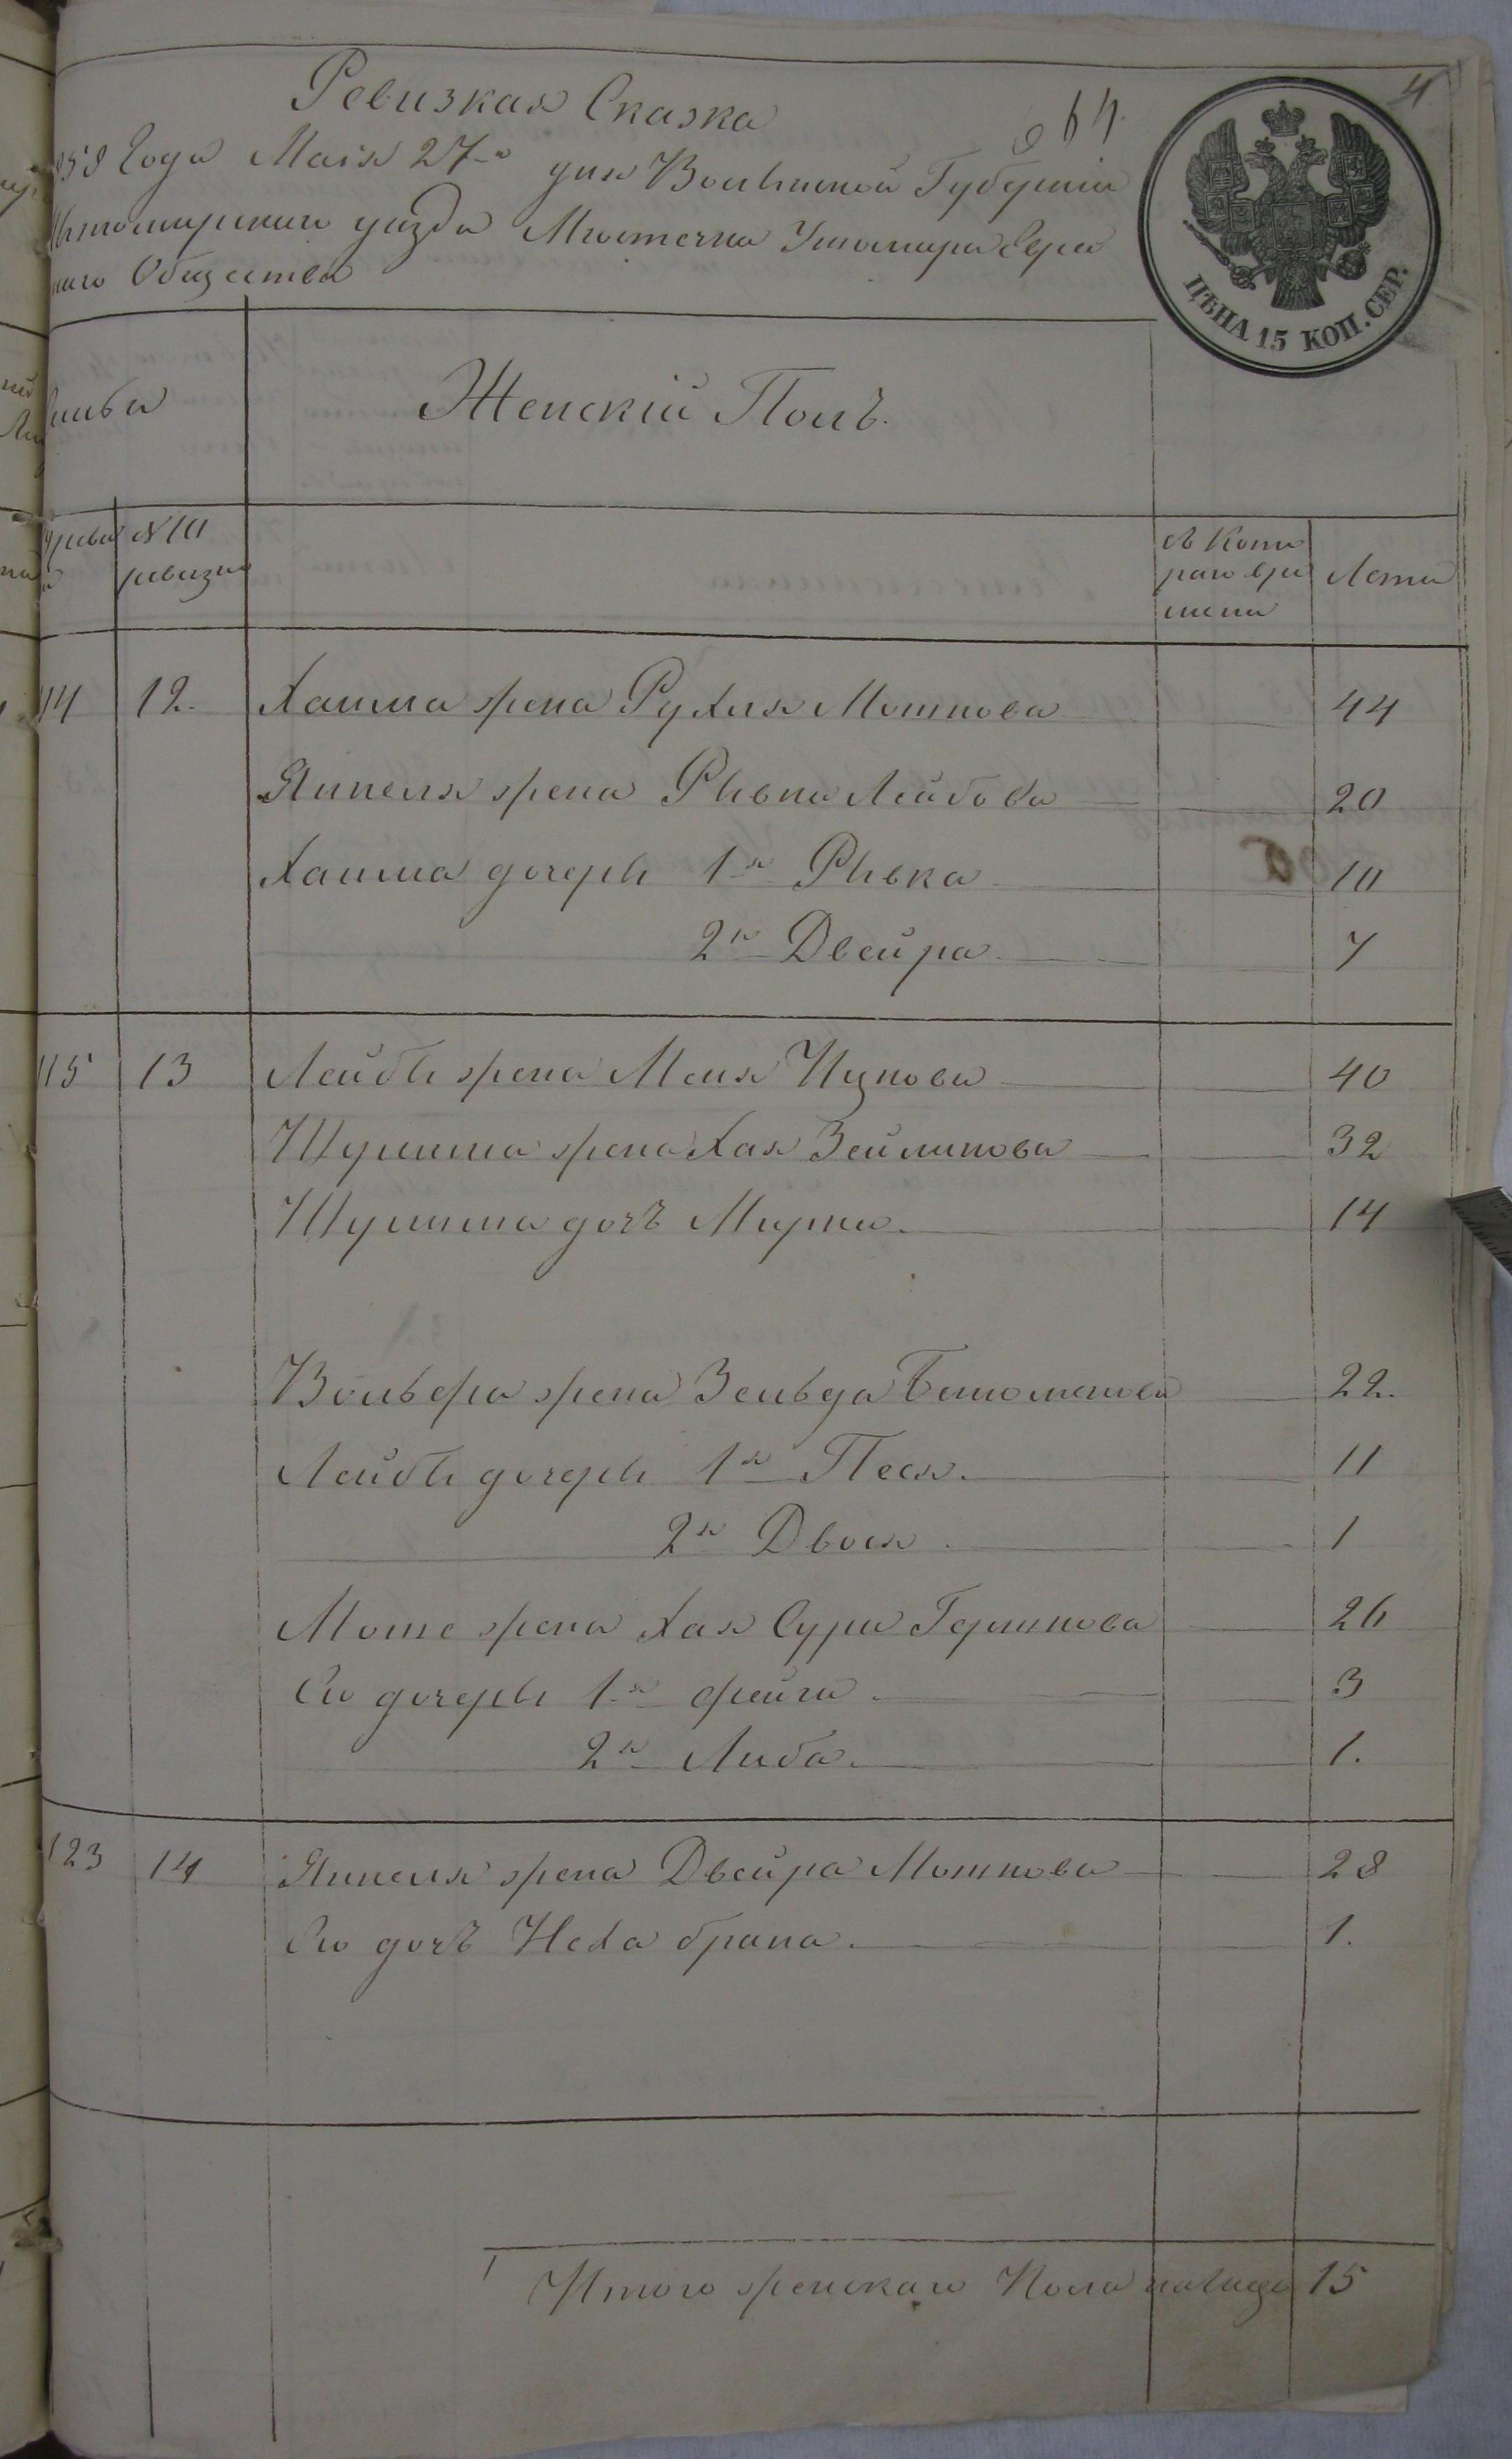 Ревизкая Сказка
64.
4
858 Года Маія 27го дня Волынской Губерніи
Житомирскаго уезда Местечка Ушомира Евреи
скаго Общества
ЦѢНА 15 КОП. СЕР.
Женскій Полъ.
№ 10 ревизіи
С Кото
раго вре
мени
Лета
14 12. Хаима жена Рухля Мошкова 44
Янкеля жена Рывка Лейбова 20
Хаима дочеры 1я Рывка 10
2я Двейра 7
115 13 Лейбы жена Меня Ицкова 40
Шулима жена Хая Зейликова 32
Шулима дочъ Мирка 14
Вольфа жена Зельда 22.
Лейбы дочеры 1я Песя. 11
2я Двося 1
Моше жена Хая Сура Гершкова 26
Его дочеры 1я Фейга 3
2я Либа. 1.
123 14 Янкеля жена Двейра Мошкова 28
Его дочъ Неха брана. 1.
Итого женскаго Пола налицо 15